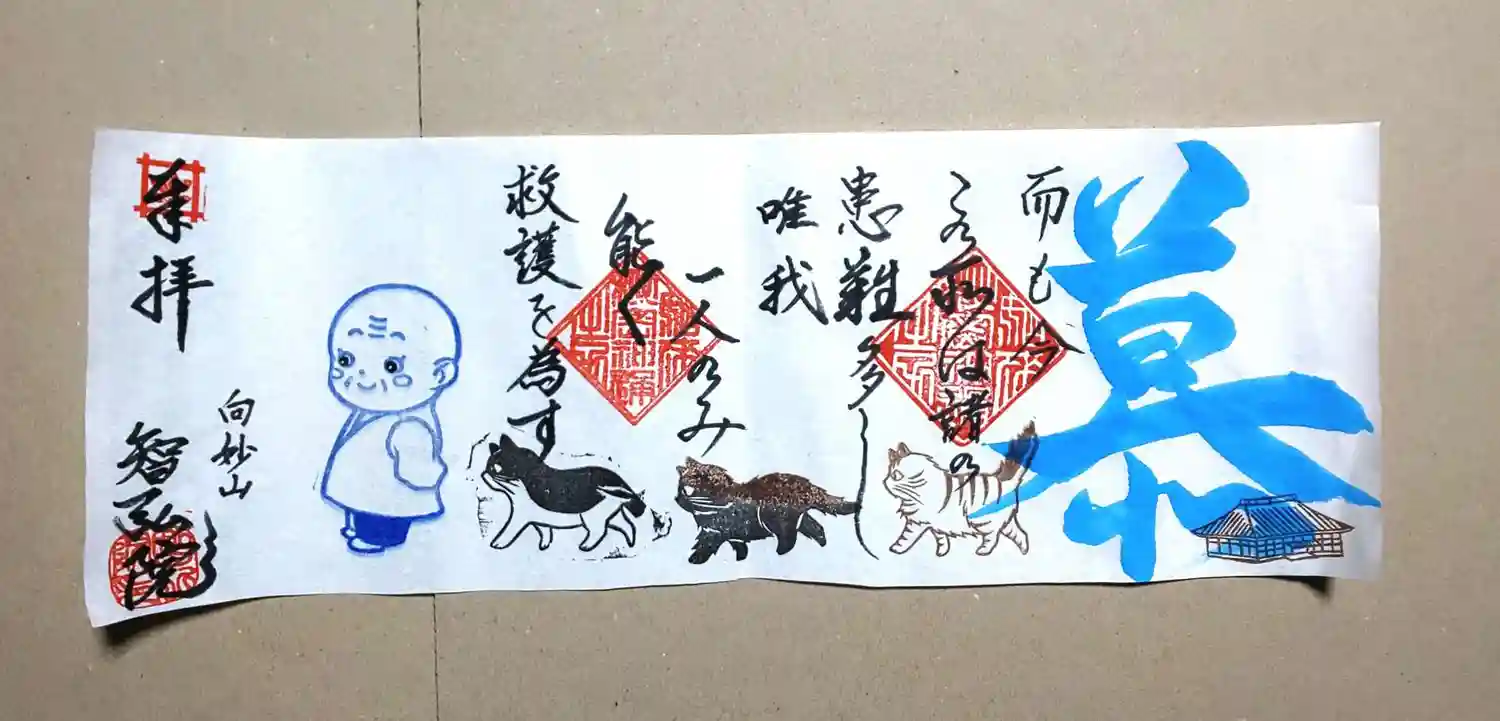 慕
而も今
この所は諸の
患難多し
唯我
一人のみ
能く
救護を為す
向妙山
奉拝
智弘院